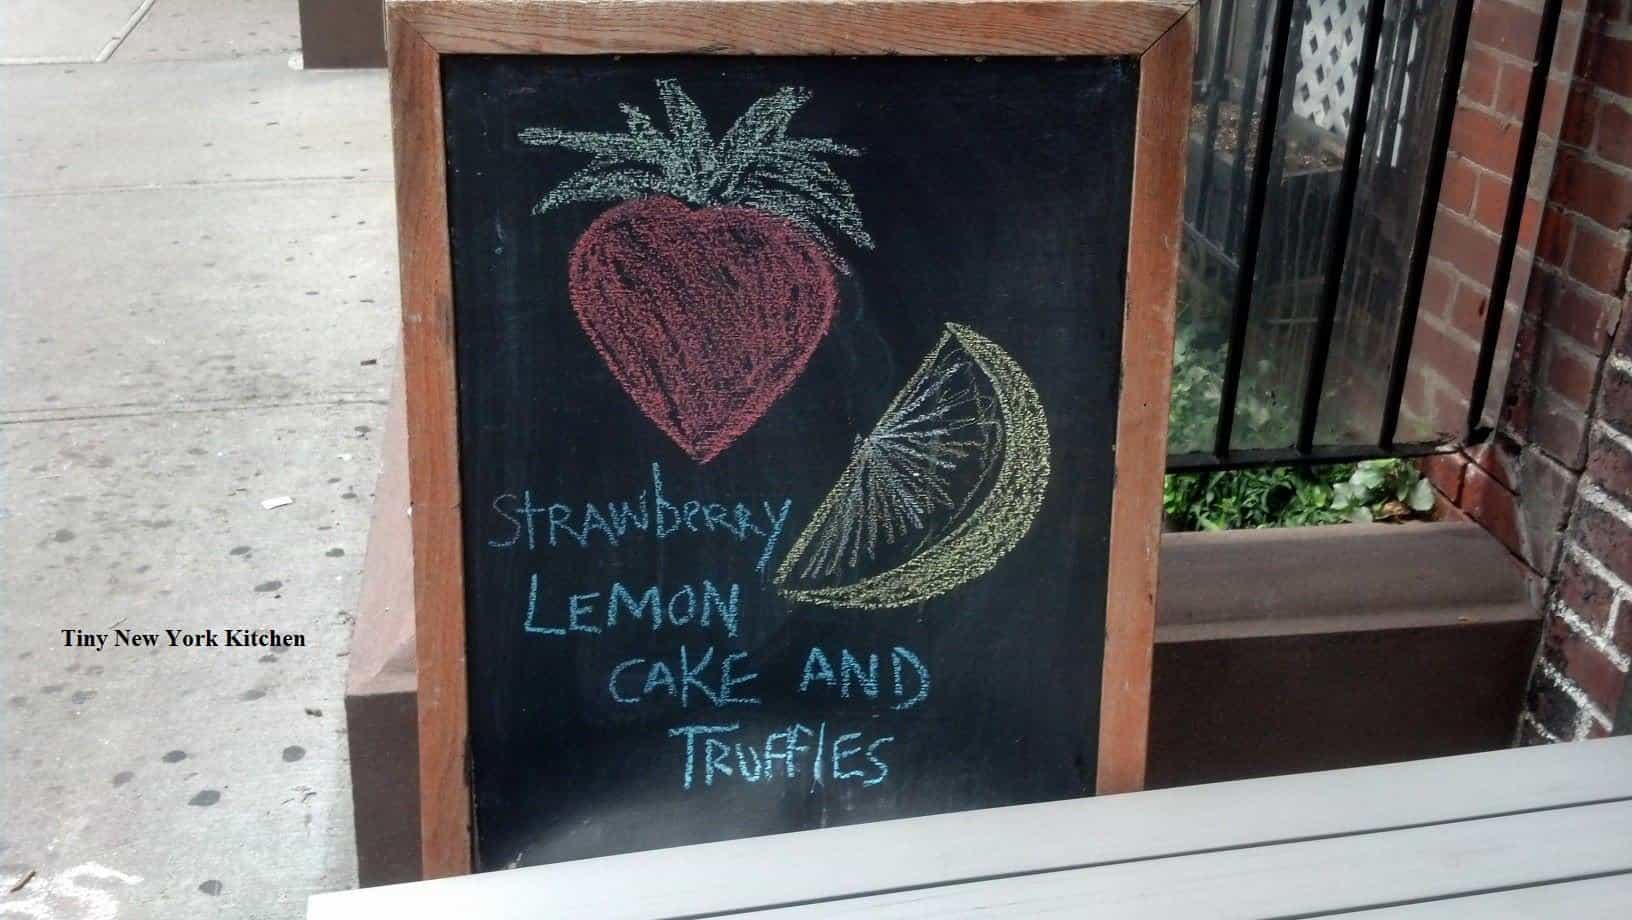 STRAWbERRY
LEMON
CAKE AND
TRUFFlES
Tiny New York Kitchen